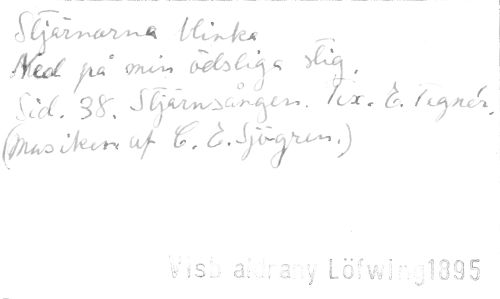 Stjärnorna blinka
Ned på min ödsliga stig.
Sid. 38. Stjärnsången. Tex. E. Tegnér.
(Musiken af C. E. Sjögren.)
Löfwing 1895